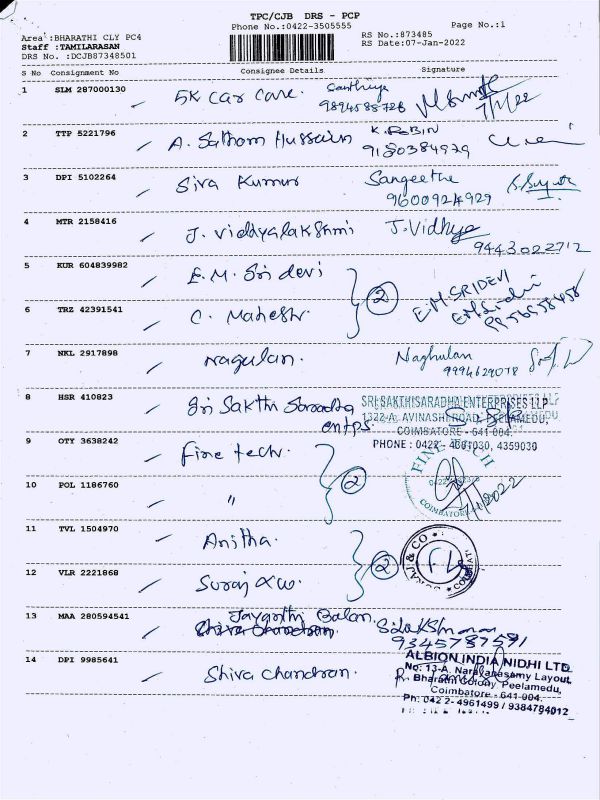 TPC/CJB DRS - PCP
Phone No.:0422-3505555
Page No.:1
Area :BHARATHI CLY PC4
Staff :TAMILARASAN
DRS No. :DCJB87348501
RS No.:873485
RS Date:07-Jan-2022
S No Consignment No Consignee Details Signature
1 SLM 287000130 5K Car Care. Santhiya
9894588728
7/1/22
2 TTP 5221796 A. Sathom Hussain K. ROBIN
9180384929
3 DPI 5102264 Siva Kumar Sangeetha
9600924929
4 MTR 2158416 J. Viddyalakshmi J. Vidhya
9443022712
5 KUR 604839982 E.M. Sri devi
2 E.M. SRIDEVI
6 TRZ 42391541 C. Mahesh.
7 NKL 2917898 Nagulan. Naghulan
9994629078
8 HSR 410823 Sri Sakthi Saradha
entps.
SRI SAKTHISARADHA ENTERPRISES LLP
1322-A, AVINASHI ROAD, PEELAMEDU,
COIMBATORE - 641 004.
PHONE : 0422 - 4361030, 4359030
9 OTY 3638242 Fine tech.
2 FINE TECH
COIMBATORE
10 POL 1186760 "
7/1/2022
11 TVL 1504970 Anitha.
2 & CO
12 VLR 2221868 Suraj & co.
13 MAA 280594541 Jayanthi Balan.
Shiva Chandran.
S. Lakshmanan
9345787591
14 DPI 9985641 Shiva Chandran.
ALBION INDIA NIDHI LTD.
No: 13-A, Narayanasamy Layout,
Bharathi Colony, Peelamedu,
Coimbatore - 641 004.
Ph: 042 2- 4961499 / 9384784012